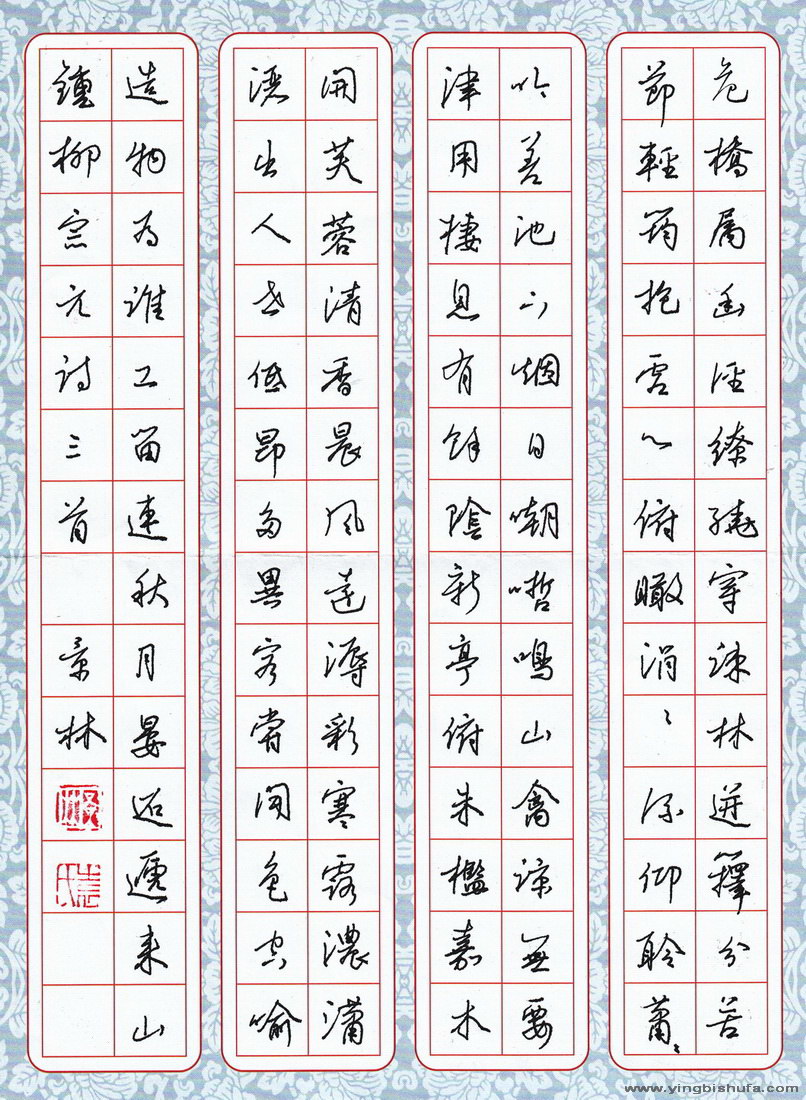 危橋属幽徑繚繞穿疎林迸籜分苦
節輕筠抱虛心俯瞰涓〻流仰聆蕭〻
吟差池下烟日嘲哳鳴山禽諒無要
津用棲息有餘陰新亭俯朱檻嘉木
開芙蓉清香晨風遠溽彩寒露濃瀟
灑出人世低昂多異容嘗聞色空喻
造物為誰工留連秋月晏迢遞来山
鍾柳宗元詩三首 景林
www.yingbishufa.com